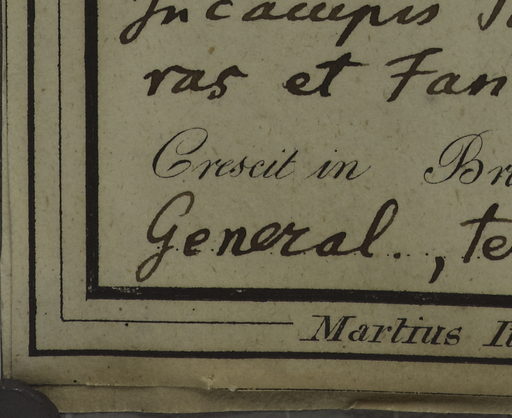 In campis
ras et Fan
Crescit in Br
General., te
Martius It